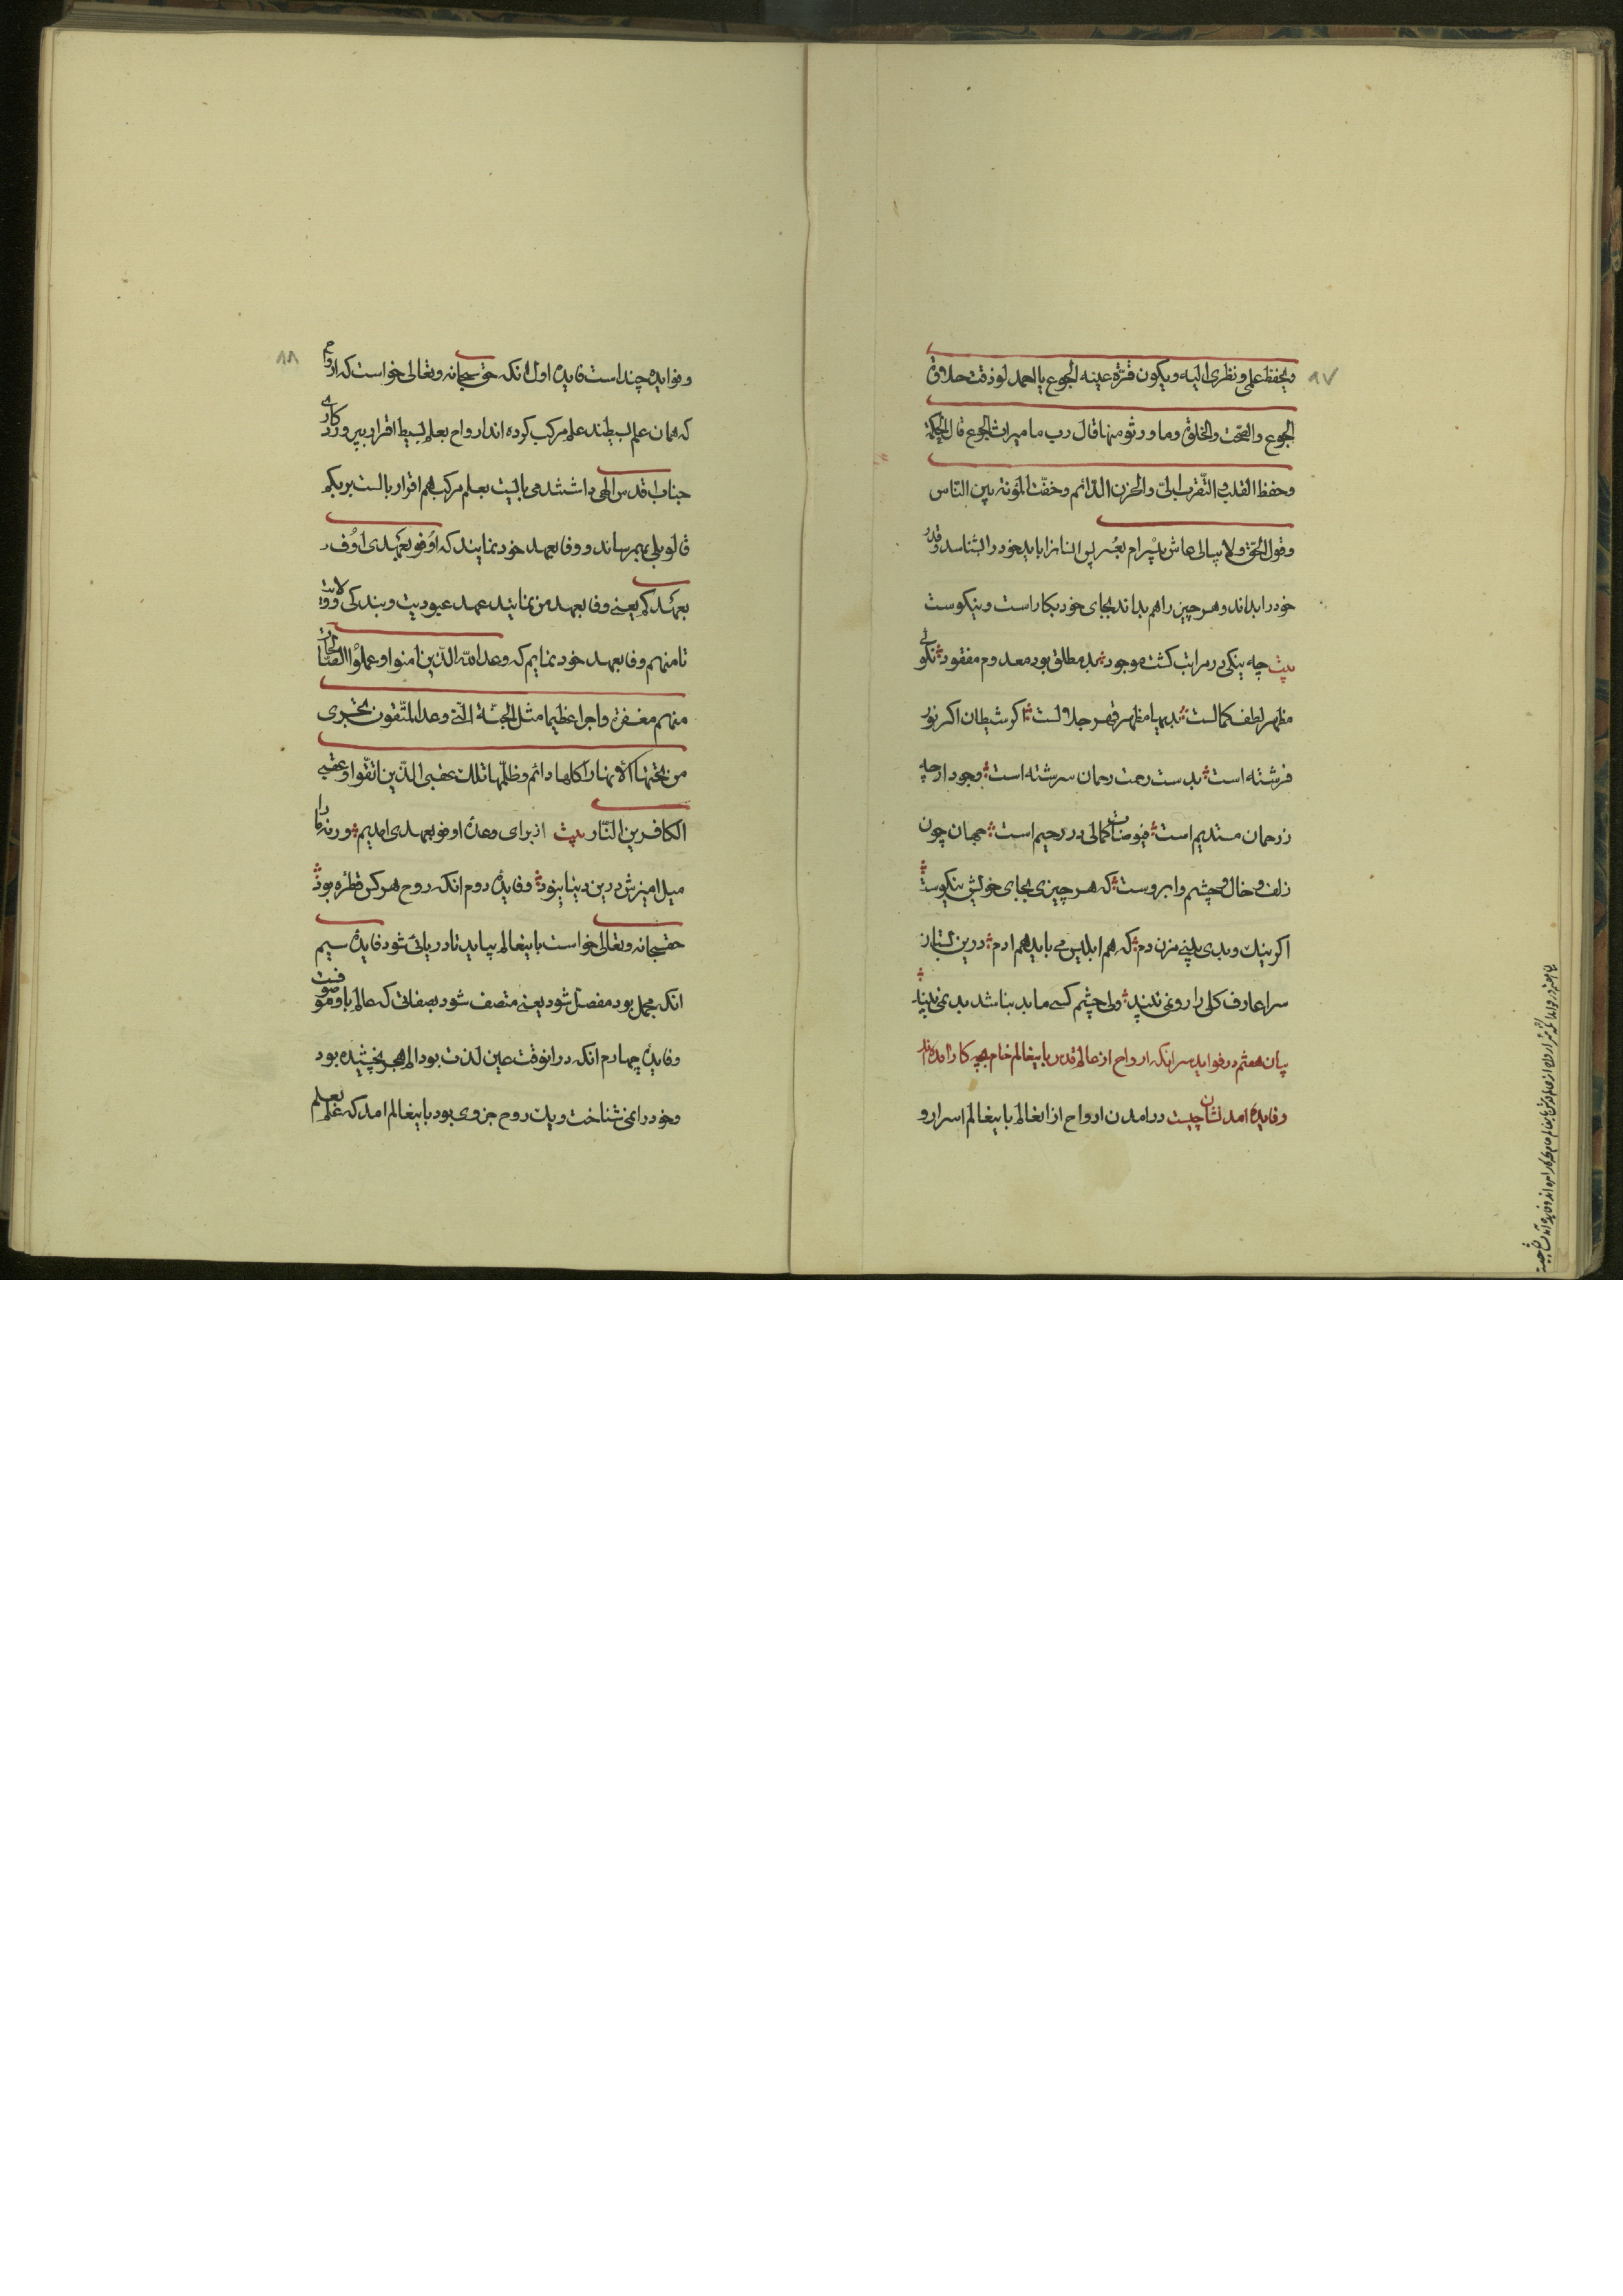 ٨٧
ويحفظ علمی و نظری اليه ويكون قرّة عينه الجوع يا احمد لو ذقت حلاوة
الجوع والصّمت والخلوة وما ورثو منها قال رب ما ميراث الجوع قال الحكمة
وحفظ القلب والتّقرب الىّ والحزن الدّائم وخفّت المؤنة بين النّاس
وقول الحقّ ولا يبالی عاش بيسرام بعُسر پس انسانرا بايد خود را بشناسد و قدر
خود را بداند و هر چيز را هم بداند بجای خود بكار است و نيكوست
بيت چه نيكی در مراتب كشت موجود بدِ مطلق بود معدوم مفقود نكوئی
مظهر لطف كمالست بديها مظهر قهر جلالست اكر شيطان اكر نور
فرشته است بدست رحمت رحمان سرشته است وجود ار چه
ز رحمان مستديم است فيوضات كمالی در رحيم است جهان چون
زلف و خال و چشم و ابروست كه هر چيزی بجای خويش نيكوست
اكر نيك و بدی بينی مزن دم كه هم ابليس می بايد هم ادم درين بستان
سرا عارف كلی را رو نمی بيند ولی چشم كسی ما بد نباشد بد نمی بيند
بيان هفتم در فوايد سر انكه ارواح از عالم قدس باينعالم خام بچه كار امده اند
و فايدهٔ امد نشان چيست در امدن ارواح از انعالم باينعالم اسرار و
٨٨
و فوايدهٔ چند است فايدهٔ اول انكه حق سبحانه و تعالی خواست كه ارواح
كه همان علم بسيطند علم مركب كرده اند ارواح بعلم بسيط اقرار بپروردكاری
جناب اقدس الهی داشتند می بايست بعلم مركب هم اقرار بالست بربكم
قالو بلی بهم رساند و وفا بعهد خود نمايند كه اوفو بعَهدی اُوف
بعهدكم يعنی وفا بعهد من نمائيد عهد عبوديت و بندكی و ولايت
تا منهم وفا بعهد خود نمايم كه وعد الله الّذين امنوا و عملوا الصّالحات
منهم مغفرة و اجرا عظيما مثل الجنّة الّتی وعد المتّقون تجری
من تحتها الأنهار اكلها دائم و ظلّها تلك عقبی الّذين اتّقوا و عقبی
الكافرين النّار بيت از برای وعدهٔ اوفو بعهدی امديم ورنه ما را
ميل اميزش درين دنيا نبود و فايدهٔ دوم انكه روح هر كس قطره بود
حقسبحانه و تعالی خواست باينعالم بيايد تا دريائی شود فايدهٔ سيم
انكه مجمل بود مفصّل شود يعنی متصف شود بصفاتی كه عالم باو موصوفست
و فايدهٔ چهارم انكه در انوقت عين لذت بود الم هجر نچشيده بود
و خود را نمی شناخت و يك روح جزوی بود باينعالم امد كه علم بعلم